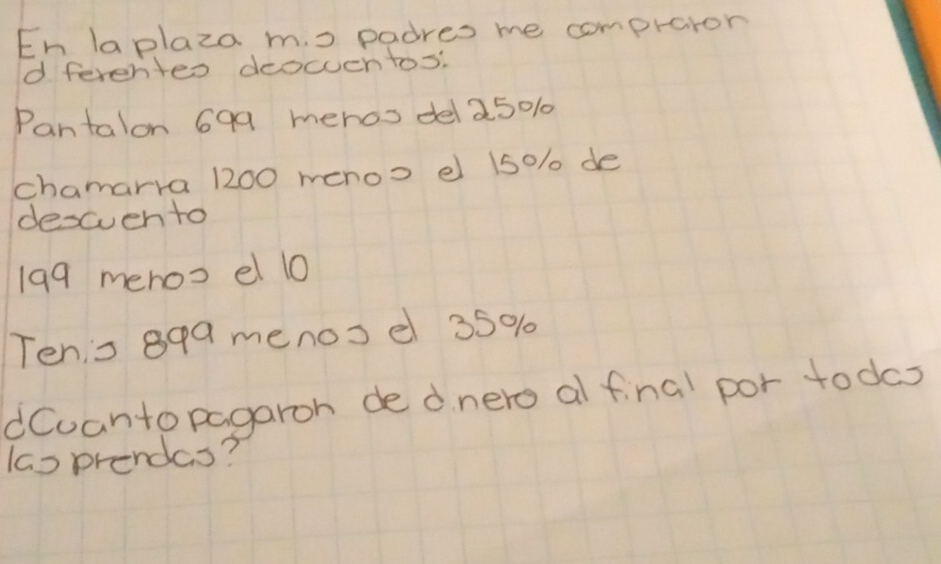 En la plaza mis padres me compraron
diferentes descuentos:
Pantalon 699 menos del 25%
chamarra 1200 menos el 15% de
descuento
199 menos el 10
Tenis 899 menos el 35%
¿Cuanto pagaron de dinero al final por todas
las prendas?